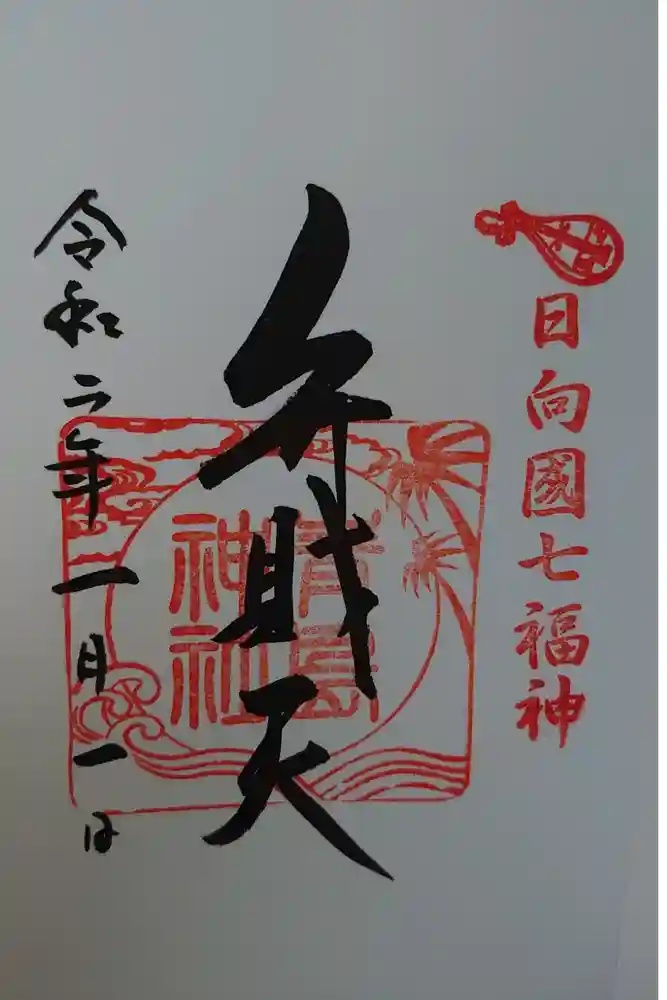 日向國七福神
弁財天
青島
神社
令和二年一月一日